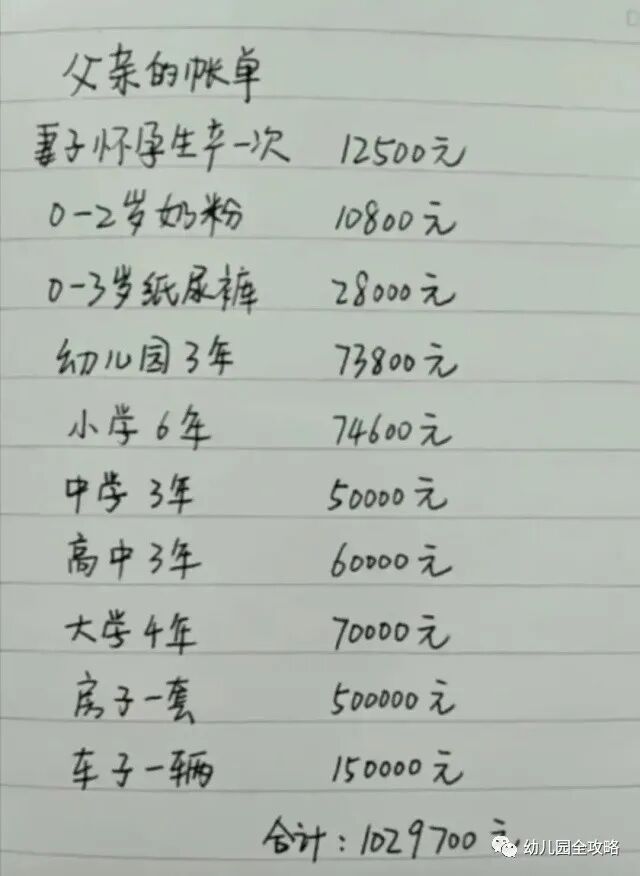 父亲的帐单
妻子怀孕生产一次 12500元
0-2岁奶粉 10800元
0-3岁纸尿裤 28000元
幼儿园3年 73800元
小学6年 74600元
中学3年 50000元
高中3年 60000元
大学4年 70000元
房子一套 500000元
车子一辆 150000元
合计:1029700元
幼儿园全攻略